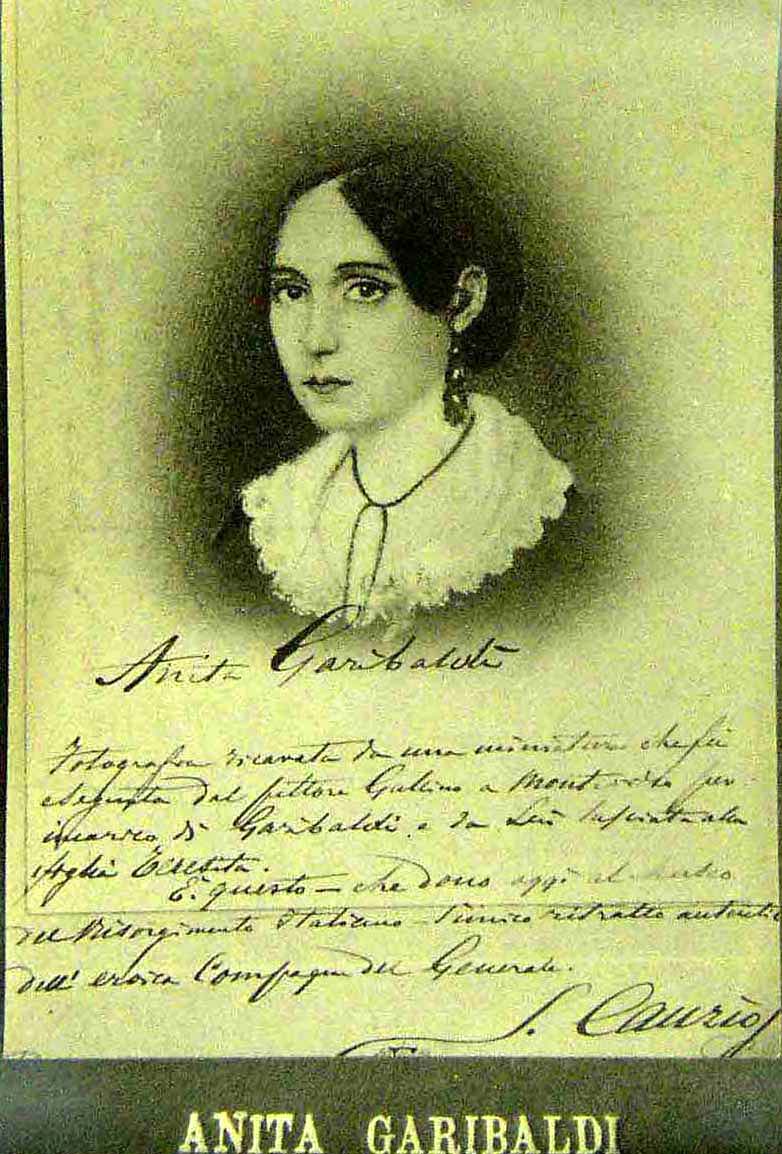 Anita Garibaldi
Fotografia ricavata da una miniatura che fu
eseguita dal pittore Gallino a Montevideo per
incarico di Garibaldi e da Lui lasciata alla
figlia Teresita.
È questo – che dono oggi al Museo
del Risorgimento Italiano – l'unico ritratto autentico
dell' eroica Compagna del Generale.
S. Canzio
ANITA GARIBALDI